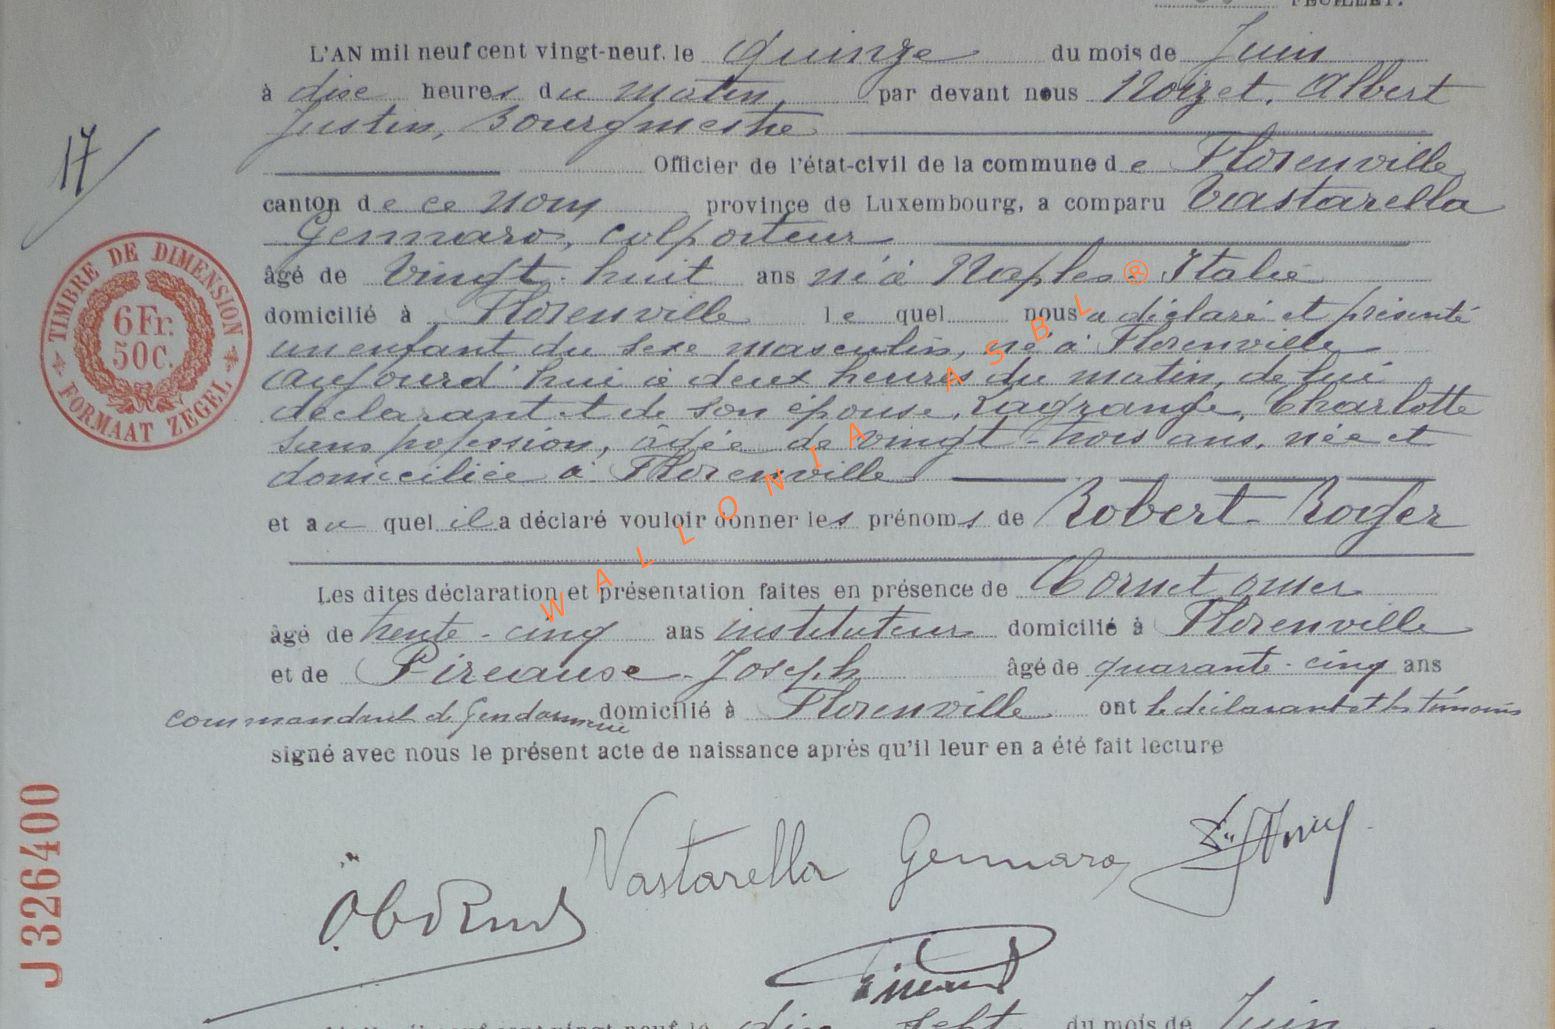 FEUILLET.
L'AN mil neuf cent vingt-neuf, le quinze du mois de Juin
à dix heures du matin, par devant nous Noizet, Albert
Justin, Bourgmestre
17
Officier de l'état-civil de la commune de Florenville
canton de ce nom province de Luxembourg, a comparu Vastarella
Gennaro, colporteur
âgé de vingt-huit ans né à Naples Italie
domicilié à Florenville lequel nous a déclaré et présenté
un enfant du sexe masculin, né à Florenville
aujourd'hui à deux heures du matin, de lui
déclarant et de son épouse, Lagrange, Charlotte
sans profession, âgée de vingt-trois ans, née et
domiciliée à Florenville
et auquel il a déclaré vouloir donner les prénoms de Robert Roger
Les dites déclaration et présentation faites en présence de Cornet Omer
âgé de trente-cinq ans instituteur domicilié à Florenville
et de Joseph âgé de quarante-cinq ans
commandant de Gendarmerie domicilié à Florenville ont le déclarant et les témoins
signé avec nous le présent acte de naissance après qu'il leur en a été fait lecture
TIMBRE DE DIMENSION
6 Fr.
50 C.
FORMAAT ZEGEL
WALLONIA ASBL ®
J 326400
Vastarella Gennaro
dix sept du mois de Juin